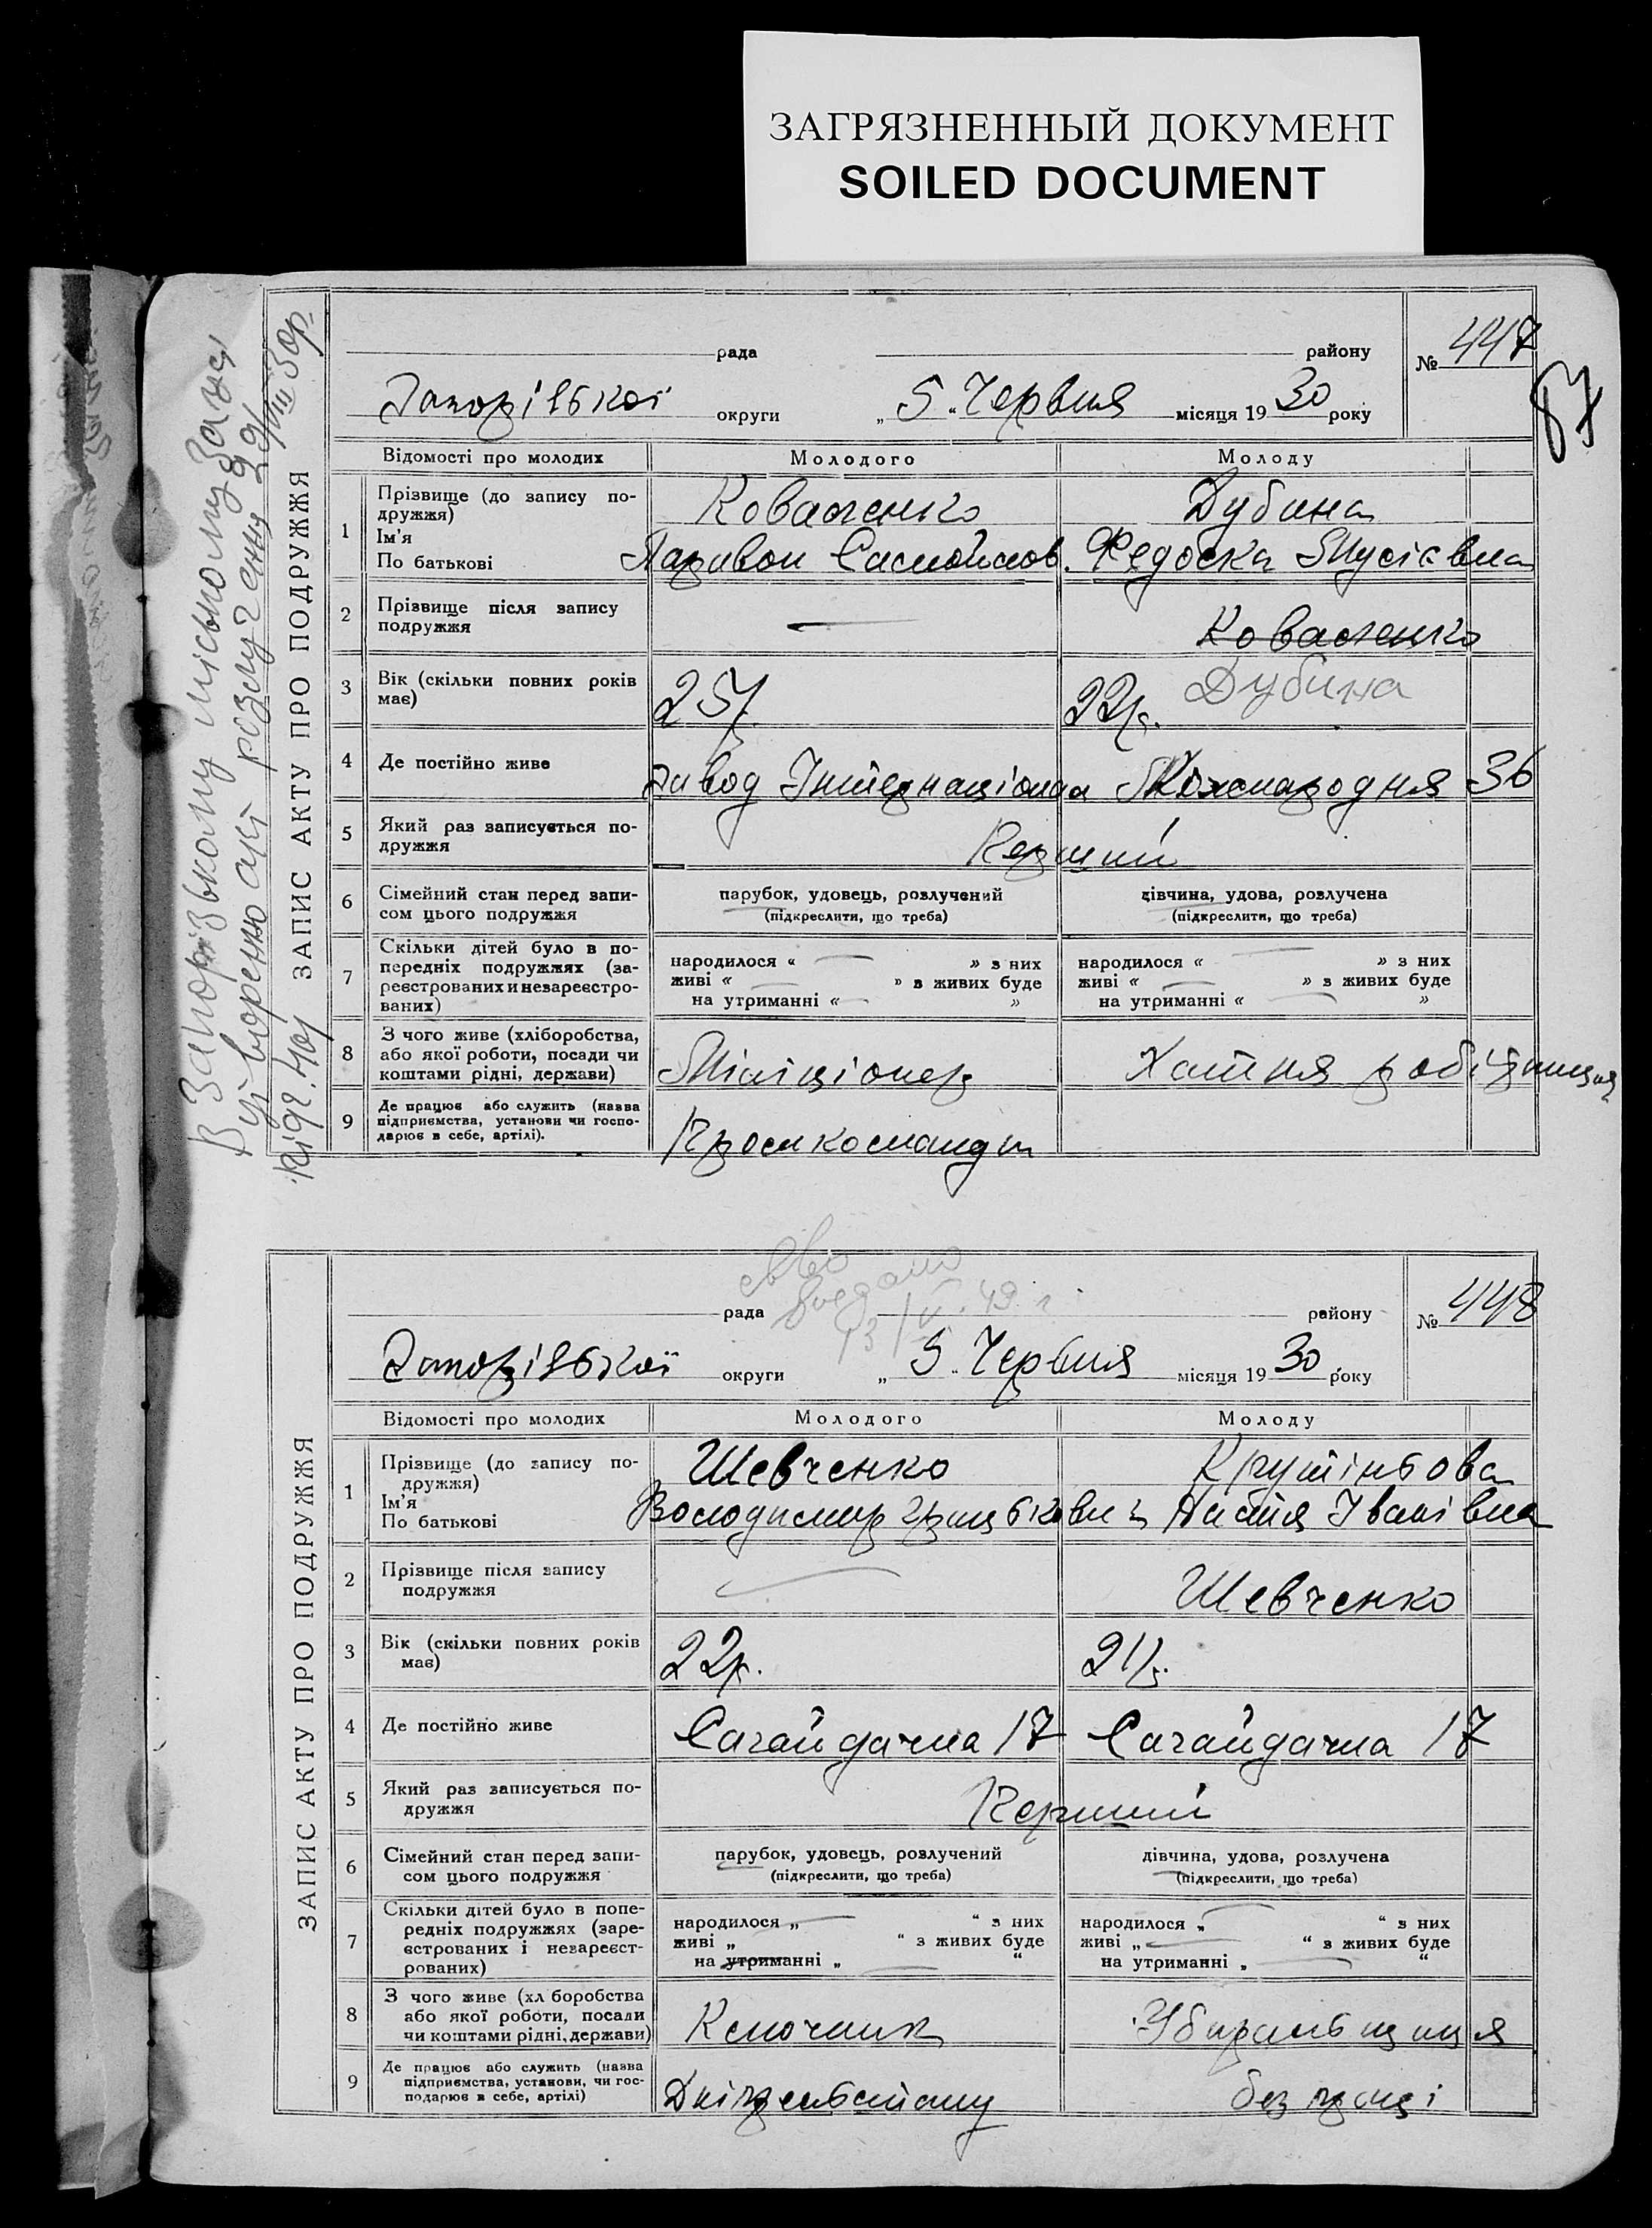 ЗАГРЯЗНЕННЫЙ ДОКУМЕНТ
SOILED DOCUMENT
ЗАПИС АКТУ ПРО ПОДРУЖЖЯ
рада району № 447
57
Запорізької округи „ 5 " Червня місяця 1930 року
Відомості про молодих Молодого Молоду
1 Прізвище (до запису по-
дружжя) Коваленко Дубина
Ім'я
По батькові Самойлов. Федоска Мусієвна
2 Прізвище після запису
подружжя — Коваленко
Дубина
3 Вік (скільки повних років
має) 25р. 22р.
4 Де постійно живе завод Інтернаціонал 36
5 Який раз записується по-
дружжя Перший
6 Сімейний стан перед запи-
сом цього подружжя
парубок, удовець, розлучений
(підкреслити, що треба)
дівчина, удова, розлучена
(підкреслити, що треба)
7 Скільки дітей було в по-
передніх подружжях (за-
реєстрованих и незареєстро-
ваних)
народилося « — » з них
живі « — » з живих буде
на утриманні « — »
народилося « — » з них
живі « — » з живих буде
на утриманні « — »
8 З чого живе (хліборобства,
або якої роботи, посади чи
коштами рідні, держави) Міліціонер Хатня робітниця
9 Де працює або служить (назва
підприємства, установи чи госпо-
дарює в себе, артілі). Промкоманда
Запорізькому міському Загсі
розлучення 29/VIII 30р.
ЗАПИС АКТУ ПРО ПОДРУЖЖЯ
св-во
выдано
13/V. 49 г
рада району № 448
Запорізької округи „ 5 " Червня місяця 1930 року
Відомості про молодих Молодого Молоду
1 Прізвище (до запису по-
дружжя) Шевченко
Ім'я
По батькові Володимир Грицькович Настя Іванівна
2 Прізвище після запису
подружжя — Шевченко
3 Вік (скільки повних років
має) 22р. 21р.
4 Де постійно живе Сагайдачна 17 Сагайдачна 17
5 Який раз записується по-
дружжя Перший
6 Сімейний стан перед запи-
сом цього подружжя
парубок, удовець, розлучений
(підкреслити, що треба)
дівчина, удова, розлучена
(підкреслити, що треба)
7 Скільки дітей було в попе-
редніх подружжях (заре-
єстрованих і незареєст-
рованих)
народилося „ — “ з них
живі „ “ з живих буде
на утриманні „ — “
народилося „ — “ з них
живі „ — “ з живих буде
на утриманні „ — “
8 З чого живе (хл боробства
або якої роботи, посади
чи коштами рідні, держави) Кмочник Убиральщиця
9 Де працює або служить (назва
підприємства, установи, чи гос-
подарює в себе, артілі) Дніпрельстану без праці